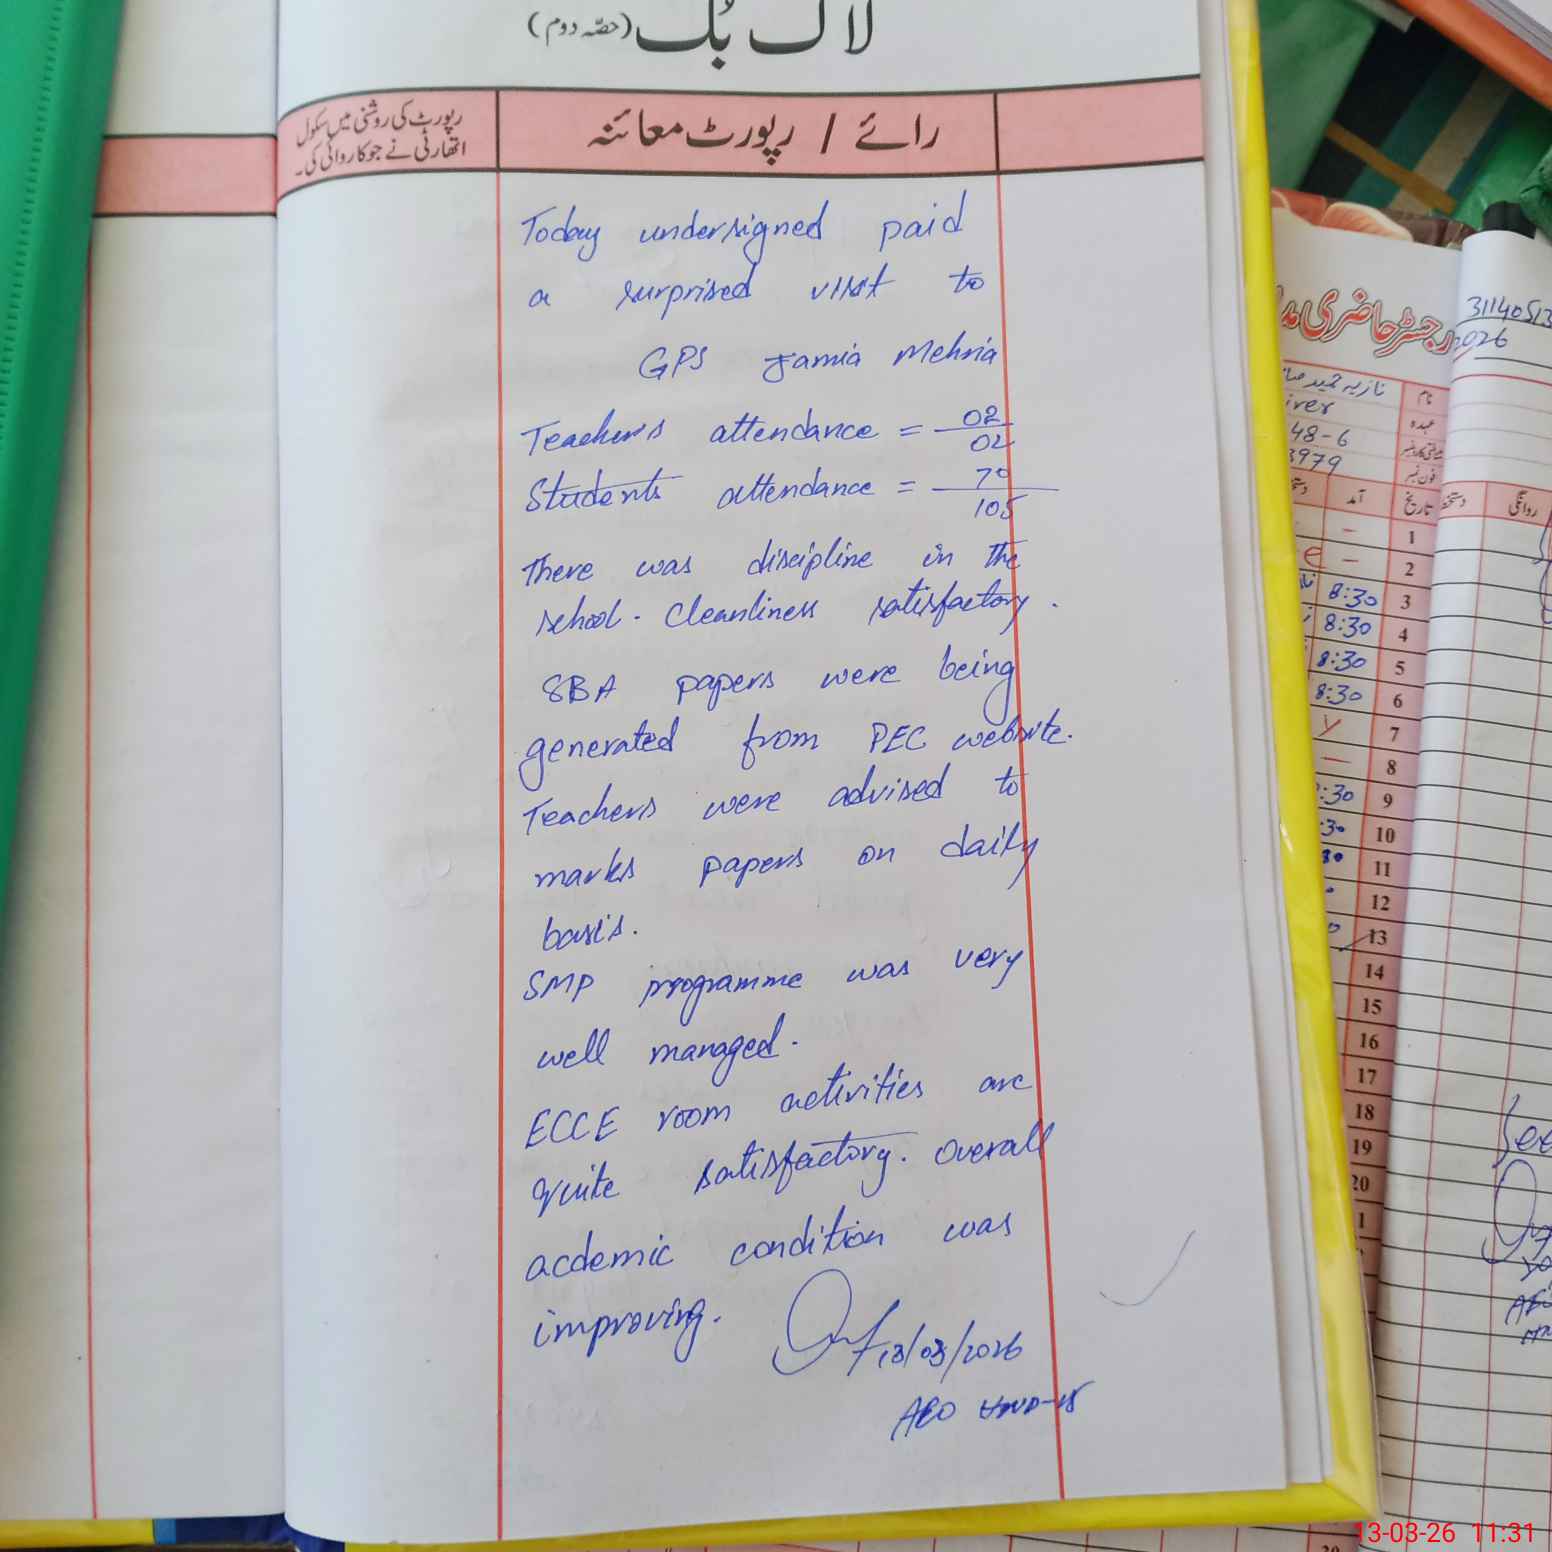 لاگ بُک (حصّہ دوم)
رپورٹ کی روشنی میں سکول
اتھارٹی نے جو کاروائی کی۔
رائے / رپورٹ معائنہ
Today undersigned paid
a surprised visit to
GPS Jamia Mehria
Teachers attendance = 02/02
Students attendance = 70/105
There was discipline in the
school. Cleanliness satisfactory.
SBA papers were being
generated from PEC website.
Teachers were advised to
marks papers on daily
basis.
SMP programme was very
well managed.
ECCE room activities are
quite satisfactory. Overall
acdemic condition was
improving.
13/03/2026
AEO
رجسٹر حاضری
31140513
2026
نام
عہدہ
48-6
3979
تاریخ
آمد
روانگی
1
2
8:30 3
8:30 4
8:30 5
8:30 6
7
8
:30 9
:30 10
11
12
13
14
15
16
17
18
19
20
13-03-26 11:31